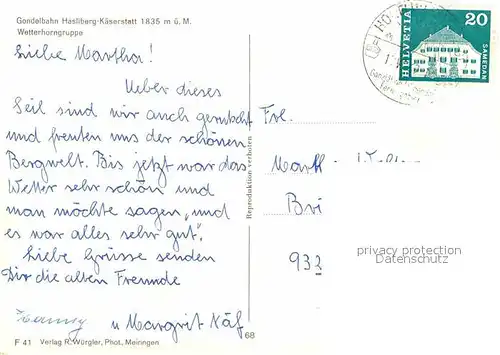 Gondelbahn Hasliberg-Käserstatt 1835 m ü. M.
Wetterhorngruppe
Liebe Martha!
Ueber dieses
Seil sind wir auch gerutscht
und freuten uns der schönen
Bergwelt. Bis jetzt war das
Wetter sehr schön und
man möchte sagen, „und
es war alles sehr gut".
Liebe Grüsse senden
Dir die alten Freunde
u Margrit Käf
F 41 Verlag R. Würgler, Phot. Meiringen
68
Reproduktion verboten
HELVETIA
20
SAMEDAN
Frl.
Marth
Bri
932
privacy protection
Datenschutz